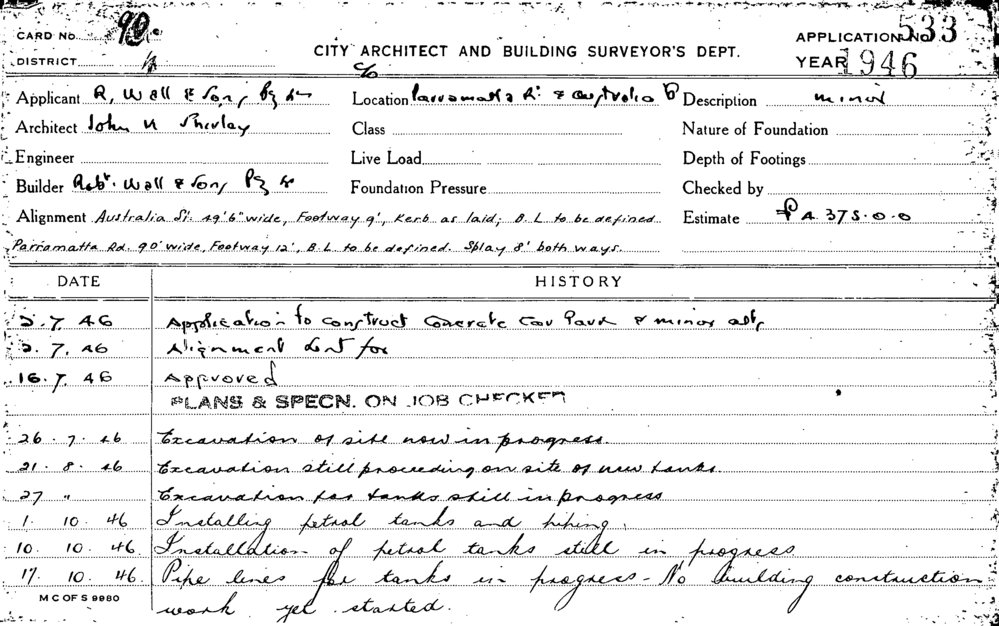 CARD No. 90
APPLICATION No 533
CITY ARCHITECT AND BUILDING SURVEYOR'S DEPT.
DISTRICT
YEAR 1946
Applicant R. Wall & Sons Pty Location c/o Parramatta Rd & Australia Description minor
Architect John Class Nature of Foundation
Engineer Live Load Depth of Footings
Builder Robt. Wall & Sons Pty Foundation Pressure Checked by
Alignment Australia St. 49'6" wide, Footway 9', Kerb as laid; B.L to be defined Estimate 375.0.0
Parramatta Rd. 90' wide, Footway 12', B.L to be defined. Splay 8' both ways.
DATE HISTORY
2.7.46 Application to construct Concrete Car Park & minor alts
2.7.46 Alignment sent for
16.7.46 Approved
PLANS & SPECN. ON JOB CHECKED
26.7.46 Excavation of site now in progress.
21.8.46 Excavation still proceeding on site of new tanks.
27 " Excavation for tanks still in progress
1.10.46 Installing petrol tanks and piping.
10.10.46 Installation of petrol tanks still in progress
17.10.46. Pipe lines for tanks in progress - No building construction
work yet started.
M C OF S 9980